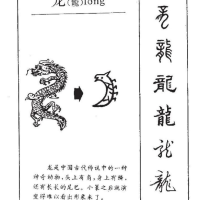 龙(龍)lóng
龙是中国古代传说中的一种
神奇动物,头上有角,身上有鳞,
还有长长的尾巴。小篆之后就演
变得难以看出形象来了。
龍
龍
龍
龙
龍